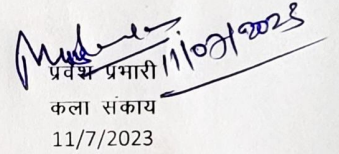 11/07/2023
प्रवेश प्रभारी
कला संकाय
11/7/2023